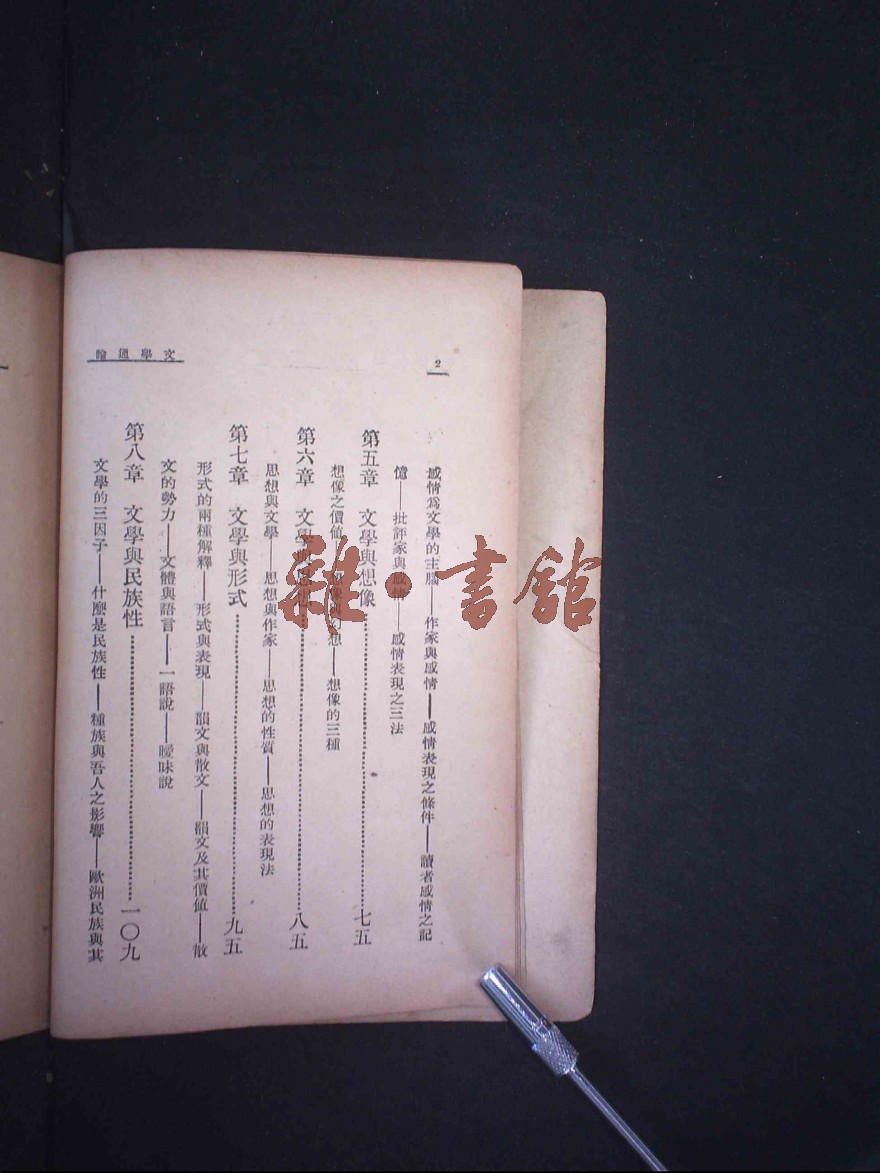 2
文學通論
感情爲文學的主腦——作家與感情——感情表現之條件——讀者感情之記
憶——批評家與感情——感情表現之三法
第五章　文學與想像…………七五
想像之價值——想像與幻想——想像的三種
第六章　文學與思想…………八五
思想與文學——思想與作家——思想的性質——思想的表現法
第七章　文學與形式…………九五
形式的兩種解釋——形式與表現——韻文與散文——韻文及其價值——散
文的勢力——文體與語言——一語說——曖昧說
第八章　文學與民族性…………一〇九
文學的三因子——什麼是民族性——種族與吾人之影響——歐洲民族與其
雜·書館